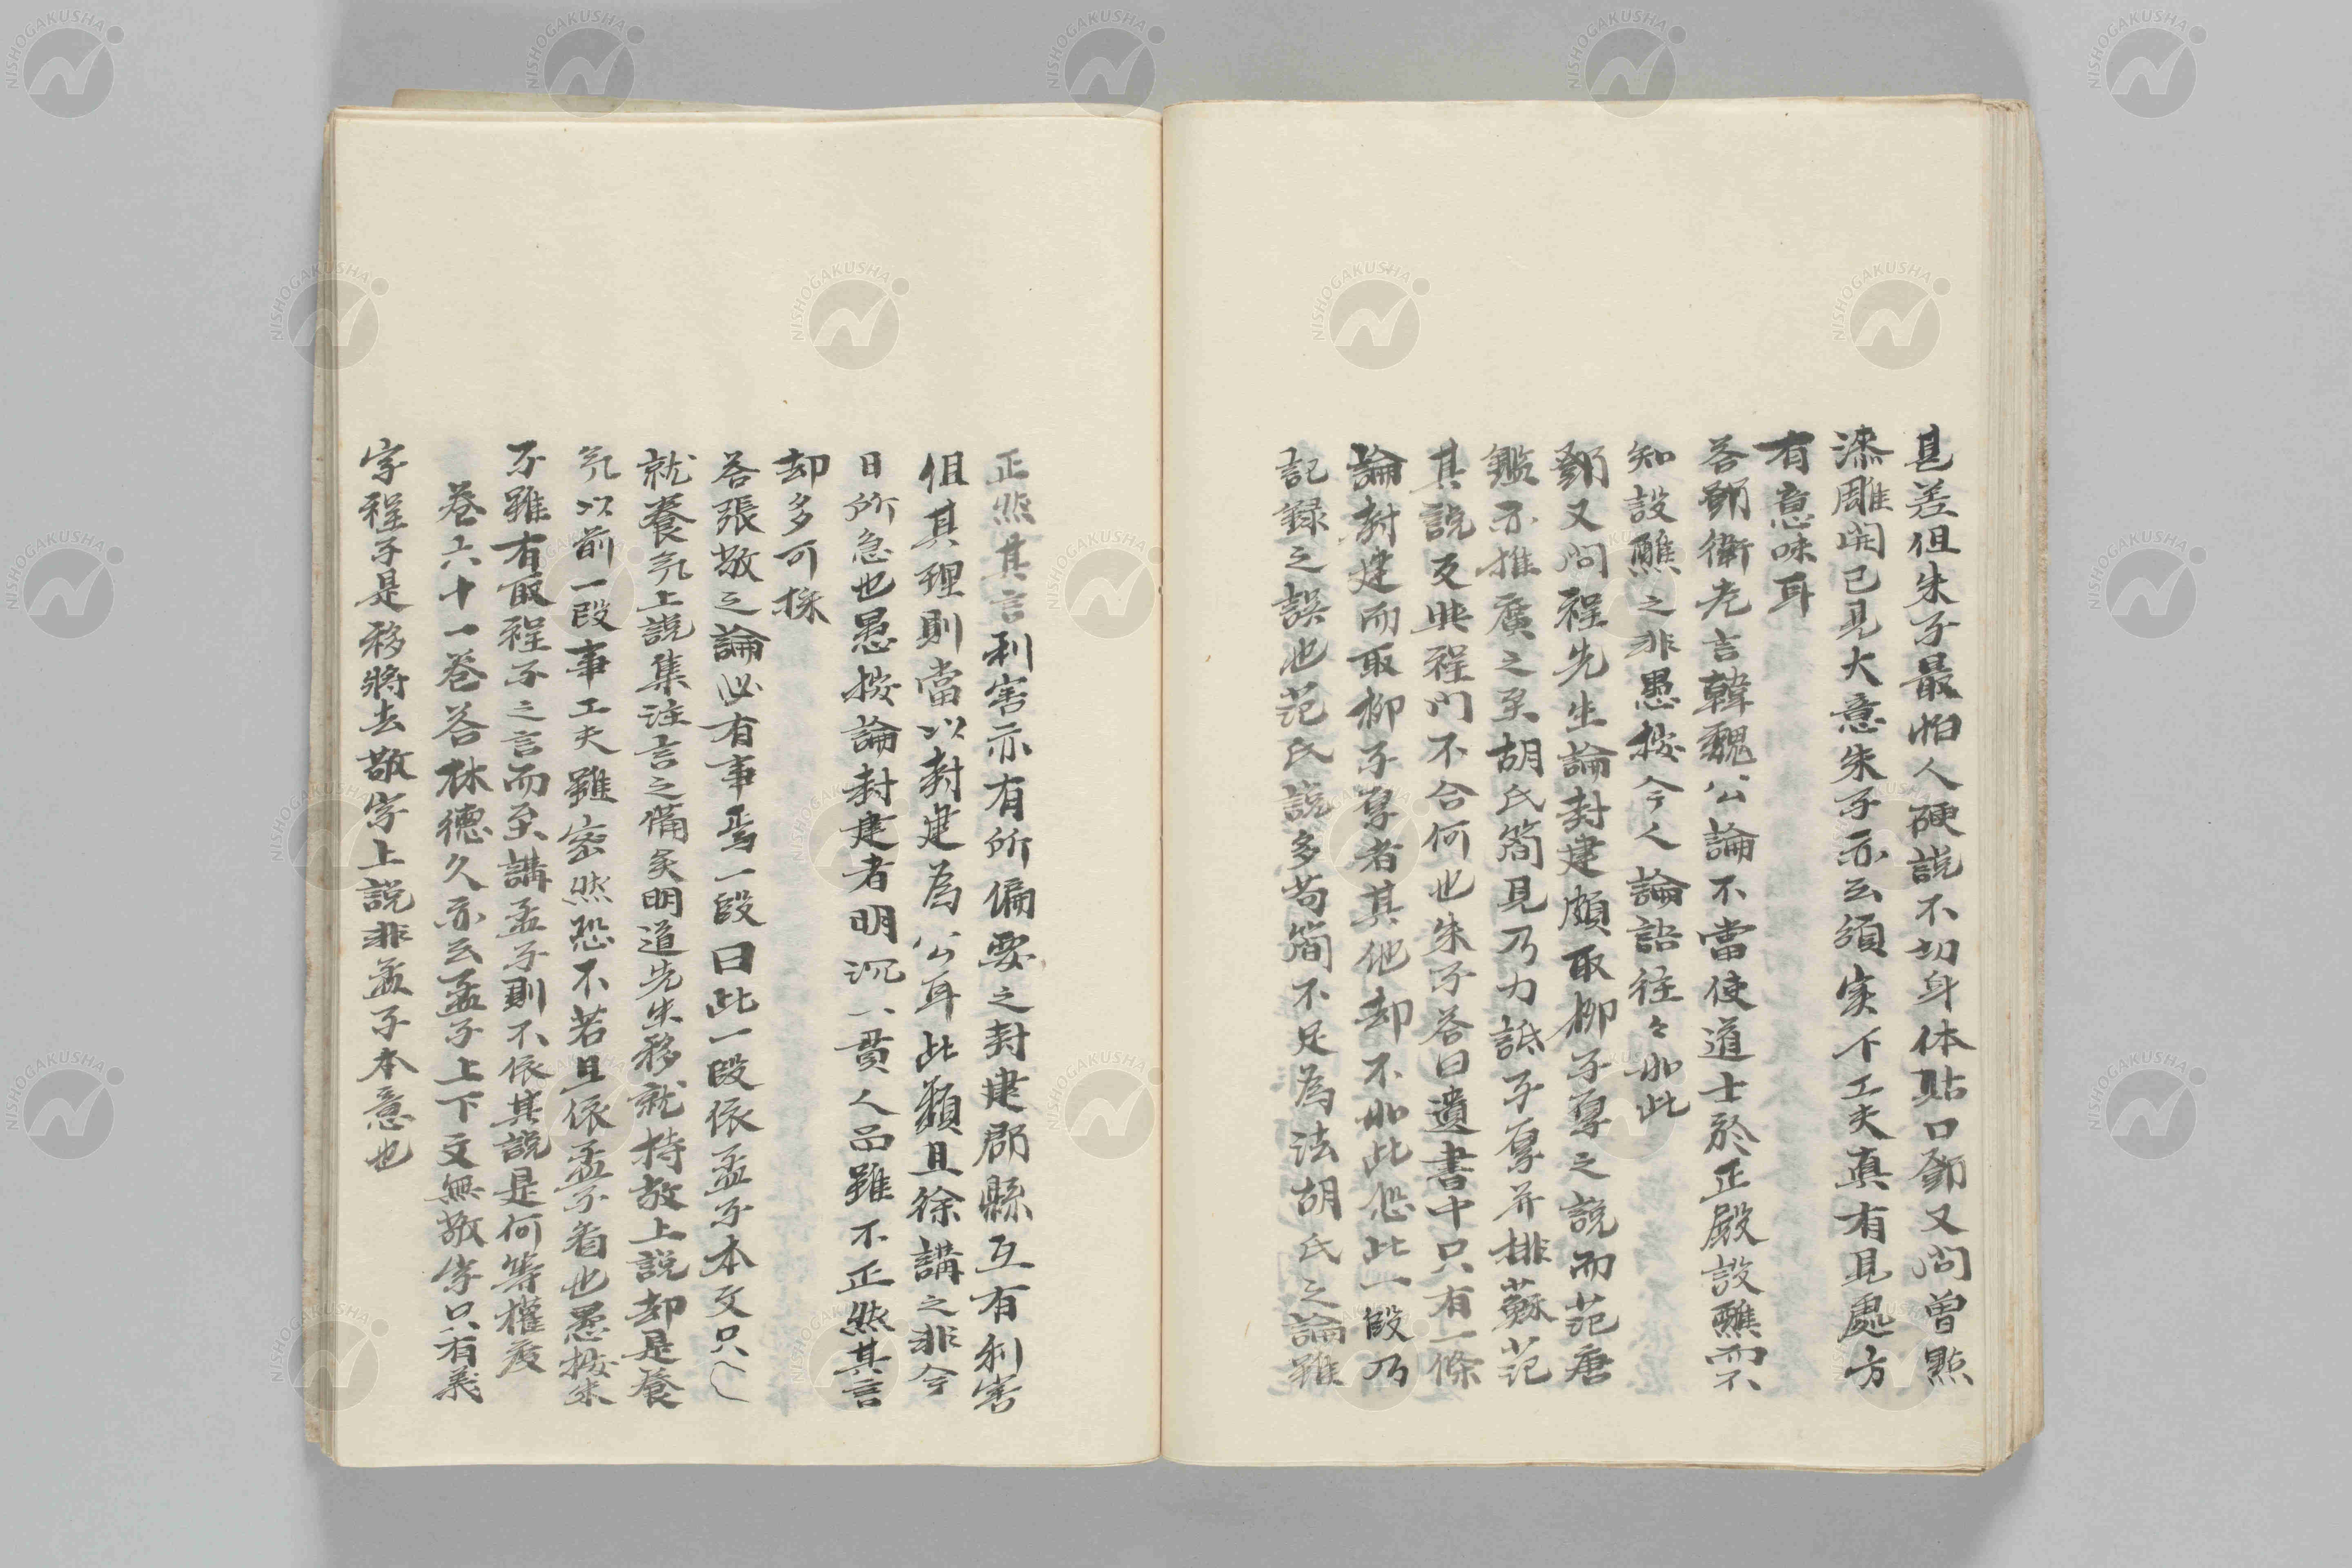 甚差但朱子最怕人硬説不切身体貼口鄧又問曽點
漆雕開已見大意朱子亦云須実下工夫真有見處方
有意味耳
答鄧衛老言韓魏公論不當使道士於正殿設醮而不
知設醮之非愚按今人論詰往々如此
鄧又問程先生論封建頗取柳子厚之説而范唐
鑑亦推廣之至胡氏管見乃力詆子厚并排蘇范
其説反与程門不合何也朱子答曰遺書中只有一條
論封建而取柳子厚者其他却不如此恐此一段乃
記録之誤也范氏説多苟簡不足為法胡氏之論雖
正然其言利害亦有所偏要之封建郡縣互有利害
但其理則當以封建為公耳此類且徐講之非今
日所急也愚按論封建者明沉一貫人品雖不正然其言
却多可採
答張敬之論必有事焉一段曰此一段依孟子本文只
就養気上説集注言之備矣明道先生移就持敬上説却是養
気以前一段事工夫雖密然恐不若且依孟子看也愚按朱
子雖有取程子之言而至講孟子則不依其説是何等權度
巻六十一巻答林德久亦云孟子上下文無敬字只有義
字程子是移將去敬字上説非孟子本意也
NISHOGAKUSHA